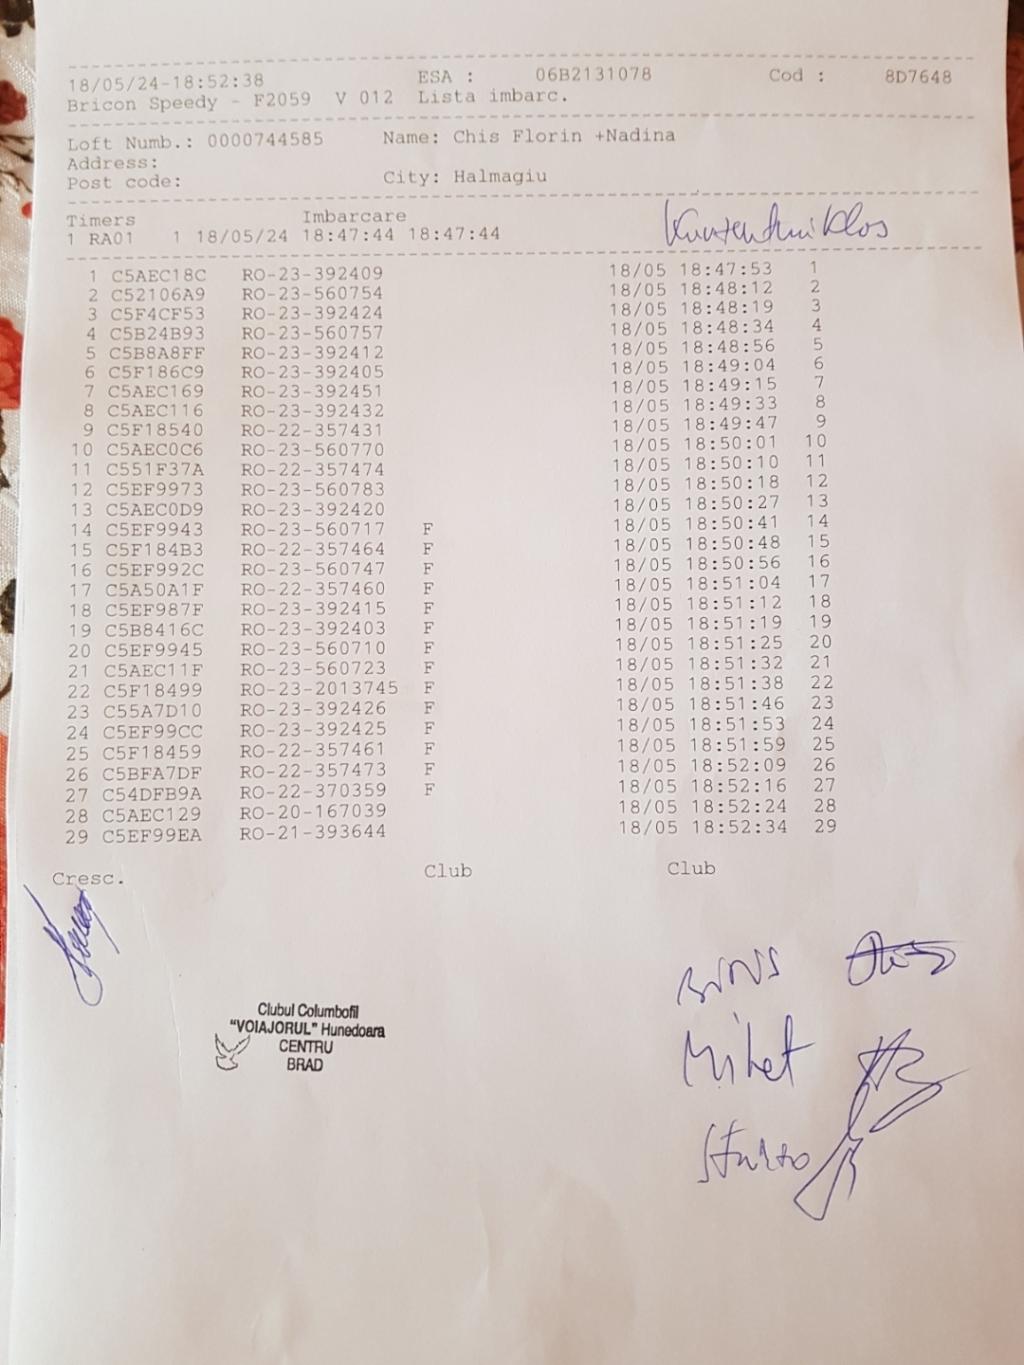 18/05/24-18:52:38 ESA : 06B2131078 Cod : 8D7648
Bricon Speedy - F2059 V 012 Lista imbarc.
Loft Numb.: 0000744585 Name: Chis Florin +Nadina
Address:
Post code: City: Halmagiu
Timers Imbarcare
1 RA01 1 18/05/24 18:47:44 18:47:44
Kunszentmiklos
1 C5AEC18C RO-23-392409 18/05 18:47:53 1
2 C52106A9 RO-23-560754 18/05 18:48:12 2
3 C5F4CF53 RO-23-392424 18/05 18:48:19 3
4 C5B24B93 RO-23-560757 18/05 18:48:34 4
5 C5B8A8FF RO-23-392412 18/05 18:48:56 5
6 C5F186C9 RO-23-392405 18/05 18:49:04 6
7 C5AEC169 RO-23-392451 18/05 18:49:15 7
8 C5AEC116 RO-23-392432 18/05 18:49:33 8
9 C5F18540 RO-22-357431 18/05 18:49:47 9
10 C5AEC0C6 RO-23-560770 18/05 18:50:01 10
11 C551F37A RO-22-357474 18/05 18:50:10 11
12 C5EF9973 RO-23-560783 18/05 18:50:18 12
13 C5AEC0D9 RO-23-392420 18/05 18:50:27 13
14 C5EF9943 RO-23-560717 F 18/05 18:50:41 14
15 C5F184B3 RO-22-357464 F 18/05 18:50:48 15
16 C5EF992C RO-23-560747 F 18/05 18:50:56 16
17 C5A50A1F RO-22-357460 F 18/05 18:51:04 17
18 C5EF987F RO-23-392415 F 18/05 18:51:12 18
19 C5B8416C RO-23-392403 F 18/05 18:51:19 19
20 C5EF9945 RO-23-560710 F 18/05 18:51:25 20
21 C5AEC11F RO-23-560723 F 18/05 18:51:32 21
22 C5F18499 RO-23-2013745 F 18/05 18:51:38 22
23 C55A7D10 RO-23-392426 F 18/05 18:51:46 23
24 C5EF99CC RO-23-392425 F 18/05 18:51:53 24
25 C5F18459 RO-22-357461 F 18/05 18:51:59 25
26 C5BFA7DF RO-22-357473 F 18/05 18:52:09 26
27 C54DFB9A RO-22-370359 F 18/05 18:52:16 27
28 C5AEC129 RO-20-167039 18/05 18:52:24 28
29 C5EF99EA RO-21-393644 18/05 18:52:34 29
Cresc. Club Club
Clubul Columbofil
"VOIAJORUL" Hunedoara
CENTRU
BRAD
Mihet